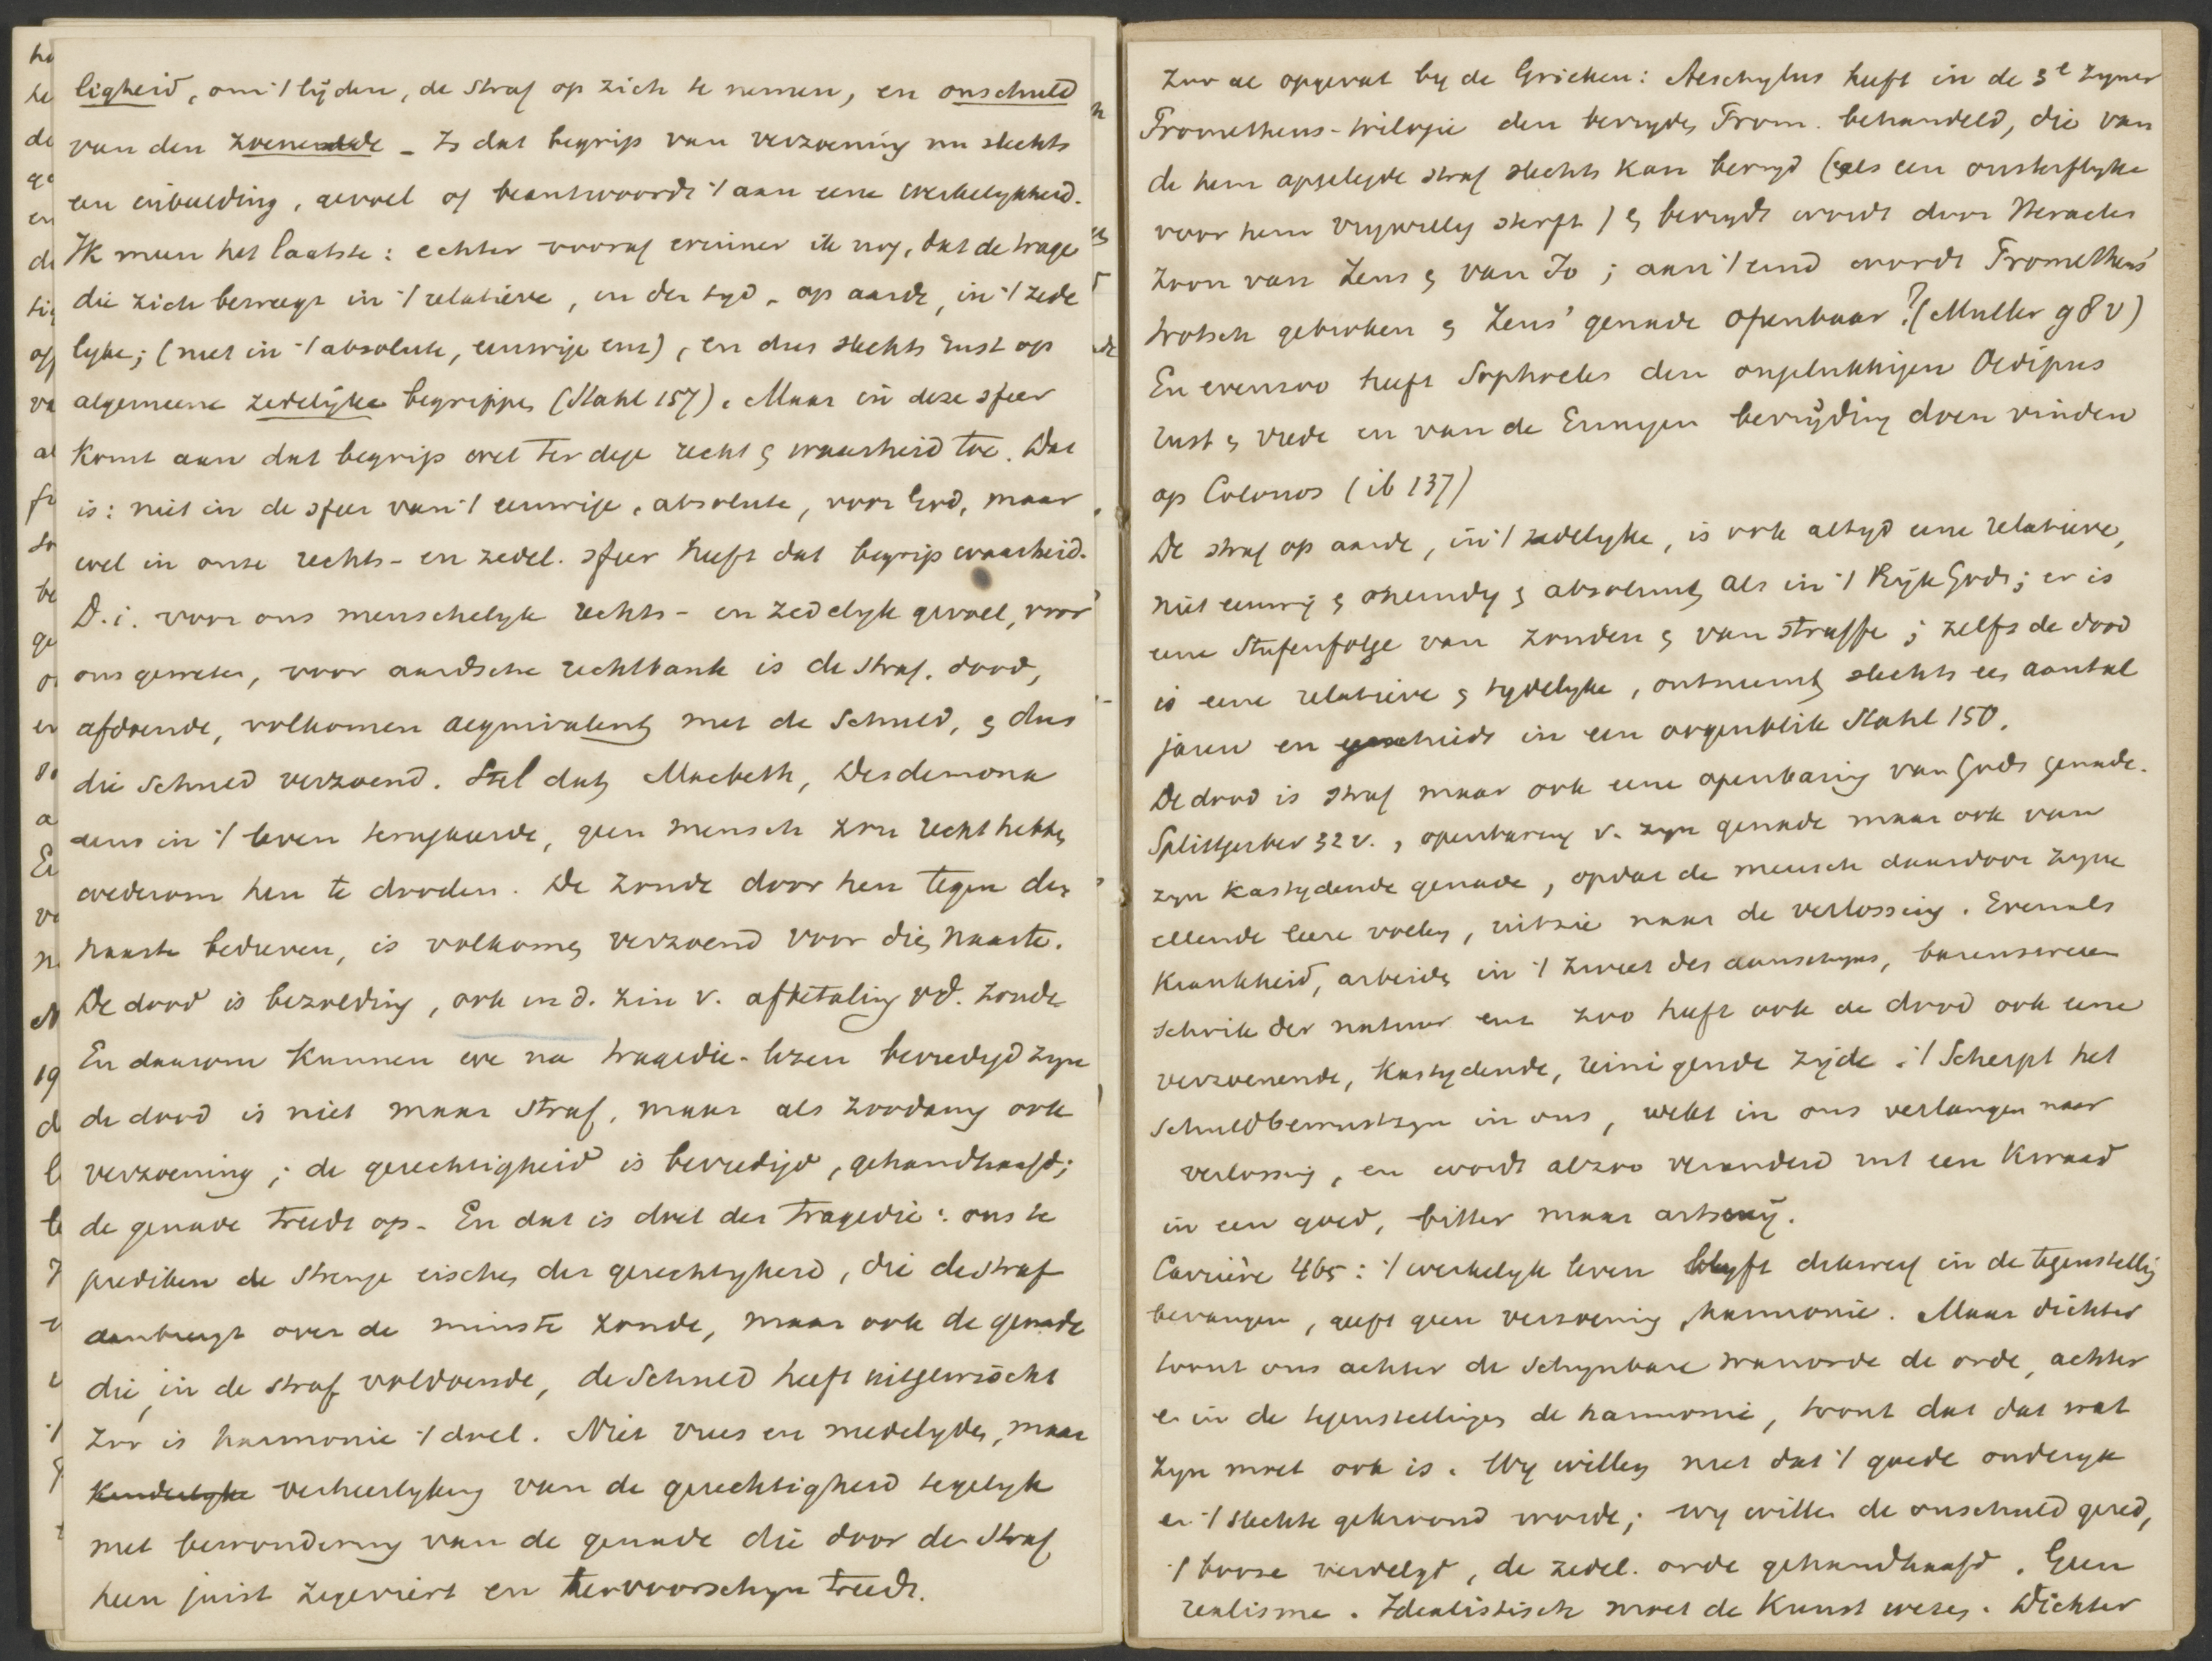 ligheid, om 't lijden, de straf op zich te nemen, en onschuld
van den zoenende _ Is dat begrip van verzoening nu slechts
een inbeelding, gevoel of beantwoordt 't aan eene werkelykheid.
Ik meen het laatste: echter vooraf erinner ik nog, dat de trage
die zich beweegt in 't relatieve, in den tyd, op aarde, in 't zede
lyke; (niet in 't absolute, eeuwige enz), en dus slechts rust op
algemeene zedelijke begrippen (Stahl 157). Maar in deze sfeer
komt aan dat begrip wel ter dege recht & waarheid toe. Dat
is: niet in de sfeer van 't eeuwige, absolute, voor God, maar
wel in onze rechts- en zedel. sfeer heeft dat begrip waarheid.
D.i. voor ons menschelyk rechts- en zedelyk gevoel, voor
ons geweten, voor aardsche rechtbank is de straf, dood,
afdoende, volkomen aequivalent met de schuld, & dus
die schuld verzoend. Stel dat Macbeth, Desdemona
eens in 't leven terugkeerde, geen mensch zou recht hebben
wederom hen te dooden. De zonde door hen tegen den
naaste bedreven, is volkomen verzoend voor dien naaste.
De dood is bezolding, ook in d. zin v. afbetaling vd. zonde
En daarom kunnen we na tragedie-lezen bevredigd zyn
de dood is niet maar straf, maar als zoodanig ook
verzoening; de gerechtigheid is bevredigd, gehandhaafd;
de genade treedt op. En dat is doel der tragedie: ons te
prediken de strenge eischen der gerechtigheid, die de straf
aanbrengt over de minste zonde, maar ook de genade
die, in de straf voldoende, de schuld heeft uitgewischt
Zoo is harmonie 't doel. Niet vrees en medelyden, maar
kinderlyke verheerlyking van de gerechtigheid tegelyk
met bewondering van de genade die door de straf
heen juist zegeviert en tervoorschyn treedt.
Zoo ae opgevat by de Grieken: Aeschylus heeft in de 3e zyner
Prometheus-trilogie den bevryden Prom. behandeld, die van
de hem opgelegde straf slechts kan bevryd (als een onsterflyke
voor hem vrywillig sterft) & bevrydt wordt door Heracles
zoon van Zeus & van Io; aan 't eind wordt Prometheus'
trotsch gebroken & Zeus' genade openbaar? (Muller 98 v)
En evenzoo heeft Sophocles den ongelukkigen Oedipus
rust & vrede en van de Erinnyen bevrijding doen vinden
op Colonos (ib 137)
De straf op aarde, in 't zedelyke, is ook altyd eene relatieve,
niet eeuwig & oneindig & absoluut als in 't Rijk Gods; er is
eene Stufenfolge van zonden & van straffe; zelfs de dood
is eene relatieve & tydelyke, ontneemt slechts een aantal
jaren en geschiedt in een oogenblik Stahl 150.
De dood is straf maar ook eene openbaring van Gods genade.
Splittgerber 32 v., openbaring v. zyn genade maar ook van
zyn kastydende genade, opdat de mensch daardoor zyne
ellende leere voelen, uitzie naar de verlossing. Evenals
krankheid, arbeiden in 't zweet des aanschyns, barensweeen
schrik der natuur enz zoo heeft ook de dood ook eene
verzoenende, kastydende, reinigende zijde. 't Scherpt het
schuldbewustzyn in ons, wekt in ons verlangen naar
verlossing, en wordt alzoo veranderd uit een kwaad
in een goed, bitter maar artseny.
Carrière 465: 't werkelyk leven blyft dikwerf in de tegenstelling
bevangen, geeft geen verzoening, harmonie. Maar dichter
toont ons achter de schynbare wanorde de orde, achter
en in de tegenstellingen de harmonie, toont dat dat wat
zyn moet ook is. Wy willen niet dat 't goede onderga
en 't slechte gekroond worde; wy willen de onschuld gered,
't booze verdelgd, de zedel. orde gehandhaafd. Geen
realisme. Idealistisch moet de kunst wezen. Dichter